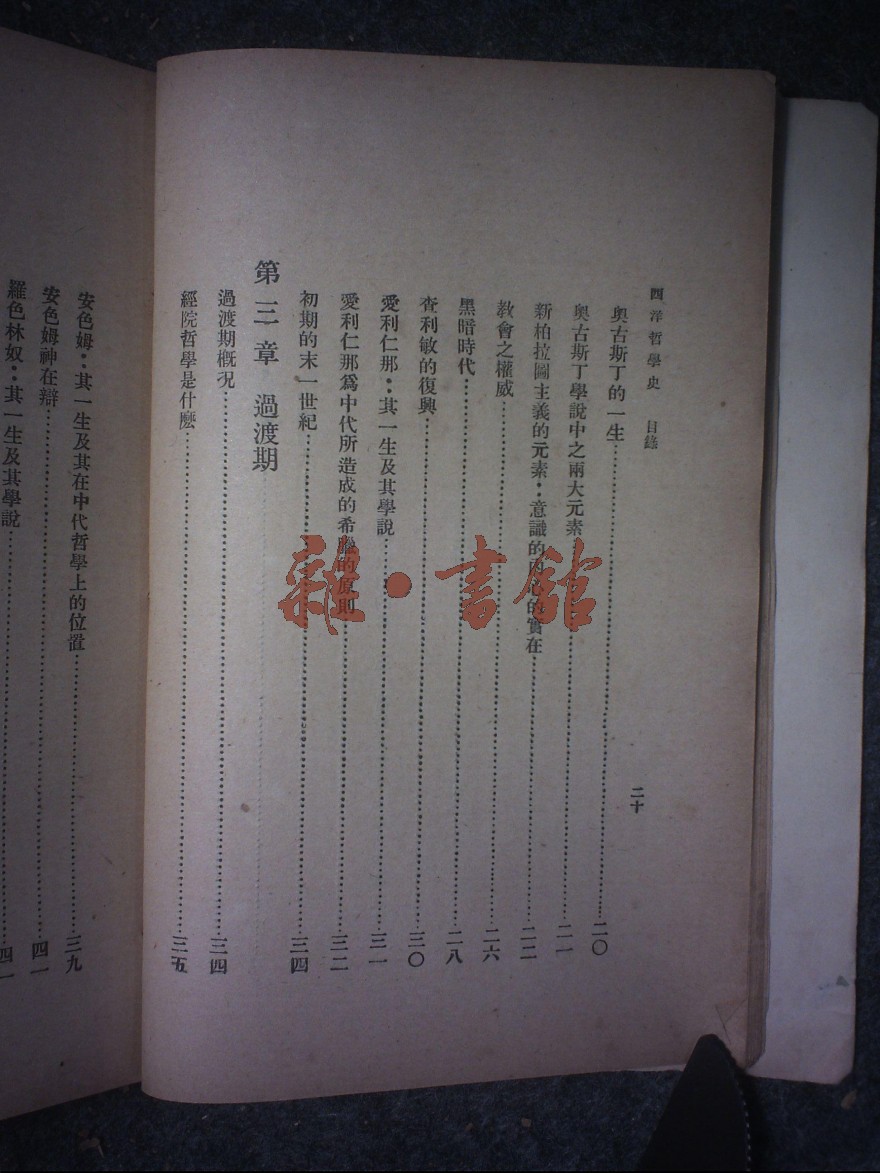 西洋哲學史 目錄
二十
奧古斯丁的一生 二〇
奧古斯丁學說中之兩大元素 二一
新柏拉圖主義的元素：意識的內心的實在 二二
教會之權威 二六
黑暗時代 二八
查利敏的復興 三〇
愛利仁那：其一生及其學說 三一
愛利仁那爲中代所造成的希臘的原則 三二
初期的末一世紀 三四
第三章 過渡期
過渡期概况 三四
經院哲學是什麽 三五
安色姆：其一生及其在中代哲學上的位置 三九
安色姆神在辯 四一
羅色林奴：其一生及其學說
雜·書館